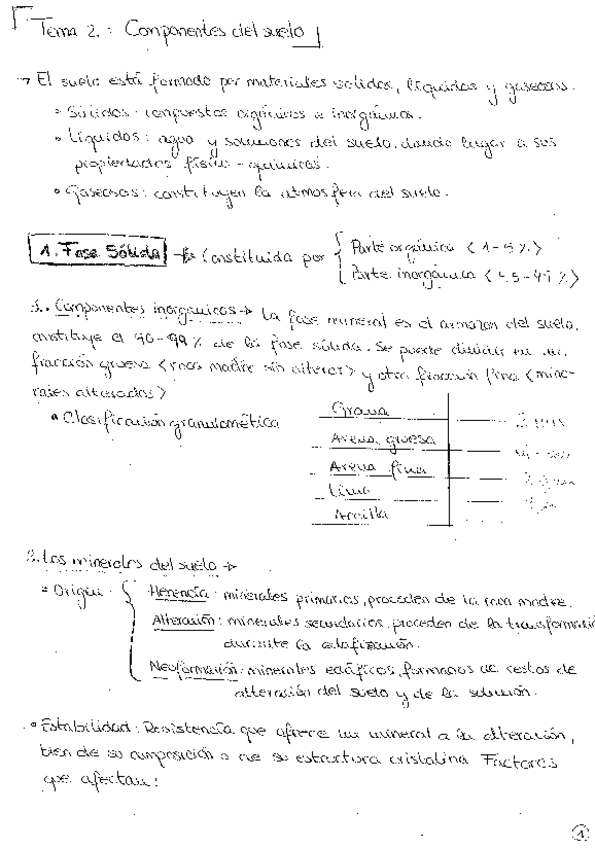 Tema 2. : Componentes del suelo
→ El suelo está formado por materiales sólidos, líquidos y gaseosos.
• Sólidos: compuestos orgánicos e inorgánicos.
• Líquidos: agua y soluciones del suelo, dando lugar a sus
propiedades físico-químicas.
• Gaseosos: constituyen la atmósfera del suelo.
1. Fase Sólida → Constituida por { Parte orgánica < 1-5 % >
Parte inorgánica < 95-99 % >
1. Componentes inorgánicos → La fase mineral es el armazón del suelo,
constituye el 90-99 % de la fase sólida. Se puede dividir en
fracción gruesa < roca madre sin alterar > y otra fracción fina < mine-
rales alterados >
• Clasificación granulométrica
Grava
Arena gruesa
Arena fina
Limo
Arcilla
2. Los minerales del suelo →
• Origen: { Herencia: minerales primarios, proceden de la roca madre.
Alteración: minerales secundarios, proceden de la transformación
durante la edafización.
Neoformación: minerales edáficos, formados de restos de
alteración del suelo y de la solución.
• Estabilidad: Resistencia que ofrece un mineral a la alteración,
bien de su composición o de su estructura cristalina. Factores
que afectan:
1